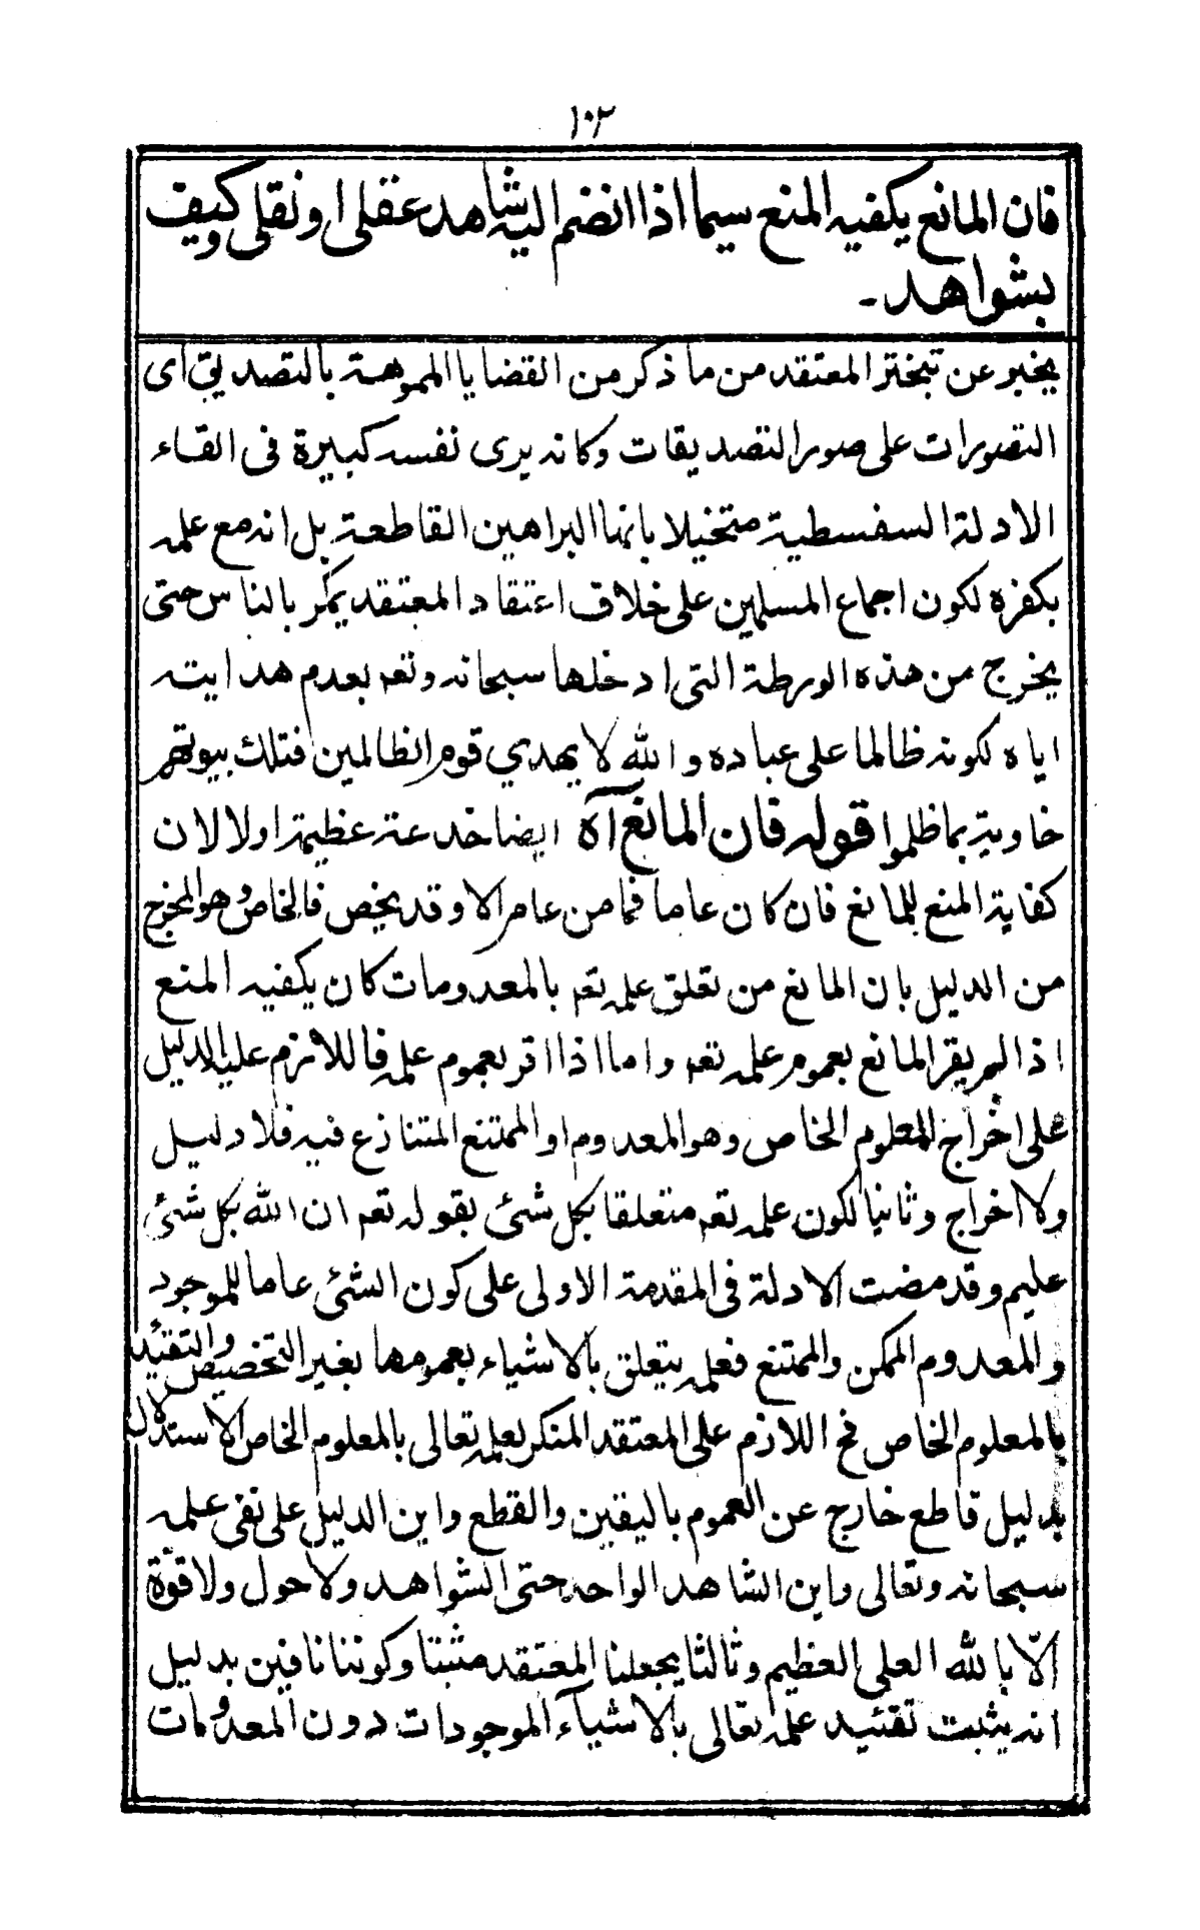 ١٠٣
فان المانع يكفيه المنع سيما اذا انضم اليه شاهد عقلى او نقلى وكيف
بشواهد -
يخبر عن تبختر المعتقد من ما ذكر من القضايا المموهة بالتصديق اى
التصورات على صور التصديقات وكانه يرى نفسه كبيرة فى القاء
الادلة السفسطية متخيلا بانها البراهين القاطعة بل انه مع علمه
بكفره لكون اجماع المسلمين على خلاف اعتقاد المعتقد يمكر بالناس حتى
يخرج من هذه الورطة التى ادخلها سبحانه وتعه بعدم هدايته
اياه لكونه ظالما على عباده والله لا يهدي قوم الظالمين فتلك بيوتهم
خاوية بما ظلموا قوله فان المانع آه ايضا خدعة عظيمة اولا لان
كفاية المنع للمانع فان كان عاما فما من عام الا وقد يخص فالخاص وهو المخرج
من الدليل بان المانع من تعلق علمه تعه بالمعدومات كان يكفيه المنع
اذا لم يقر المانع بعموم علمه تعه واما اذا اقر بعموم علمه فاللازم عليه الدليل
على اخراج المعلوم الخاص وهو المعدوم او الممتنع المتنازع فيه فلا دليل
ولا اخراج وثانيا لكون علمه تعه متعلقا بكل شئ بقوله تعه ان الله بكل شئ
عليم وقد مضت الادلة فى المقدمة الاولى على كون الشئ عاما للموجود
والمعدوم الممكن والممتنع فعلمه يتعلق بالاشياء بعمومها بغير التخصيص والتقئيد
بالمعلوم الخاص فح اللازم على المعتقد المنكر بعلمه تعالى بالمعلوم الخاص الاستدلال
بدليل قاطع خارج عن العموم باليقين والقطع واين الدليل على نفى علمه
سبحانه وتعالى واين الشاهد الواحد حتى الشواهد ولا حول ولا قوّة
الّا بالله العلى العظيم وثالثا يجعلنا المعتقد مثبتا وكوننا نافين بدليل
انه يثبت تقئيد علمه تعالى بالاشيآء الموجودات دون المعدومات